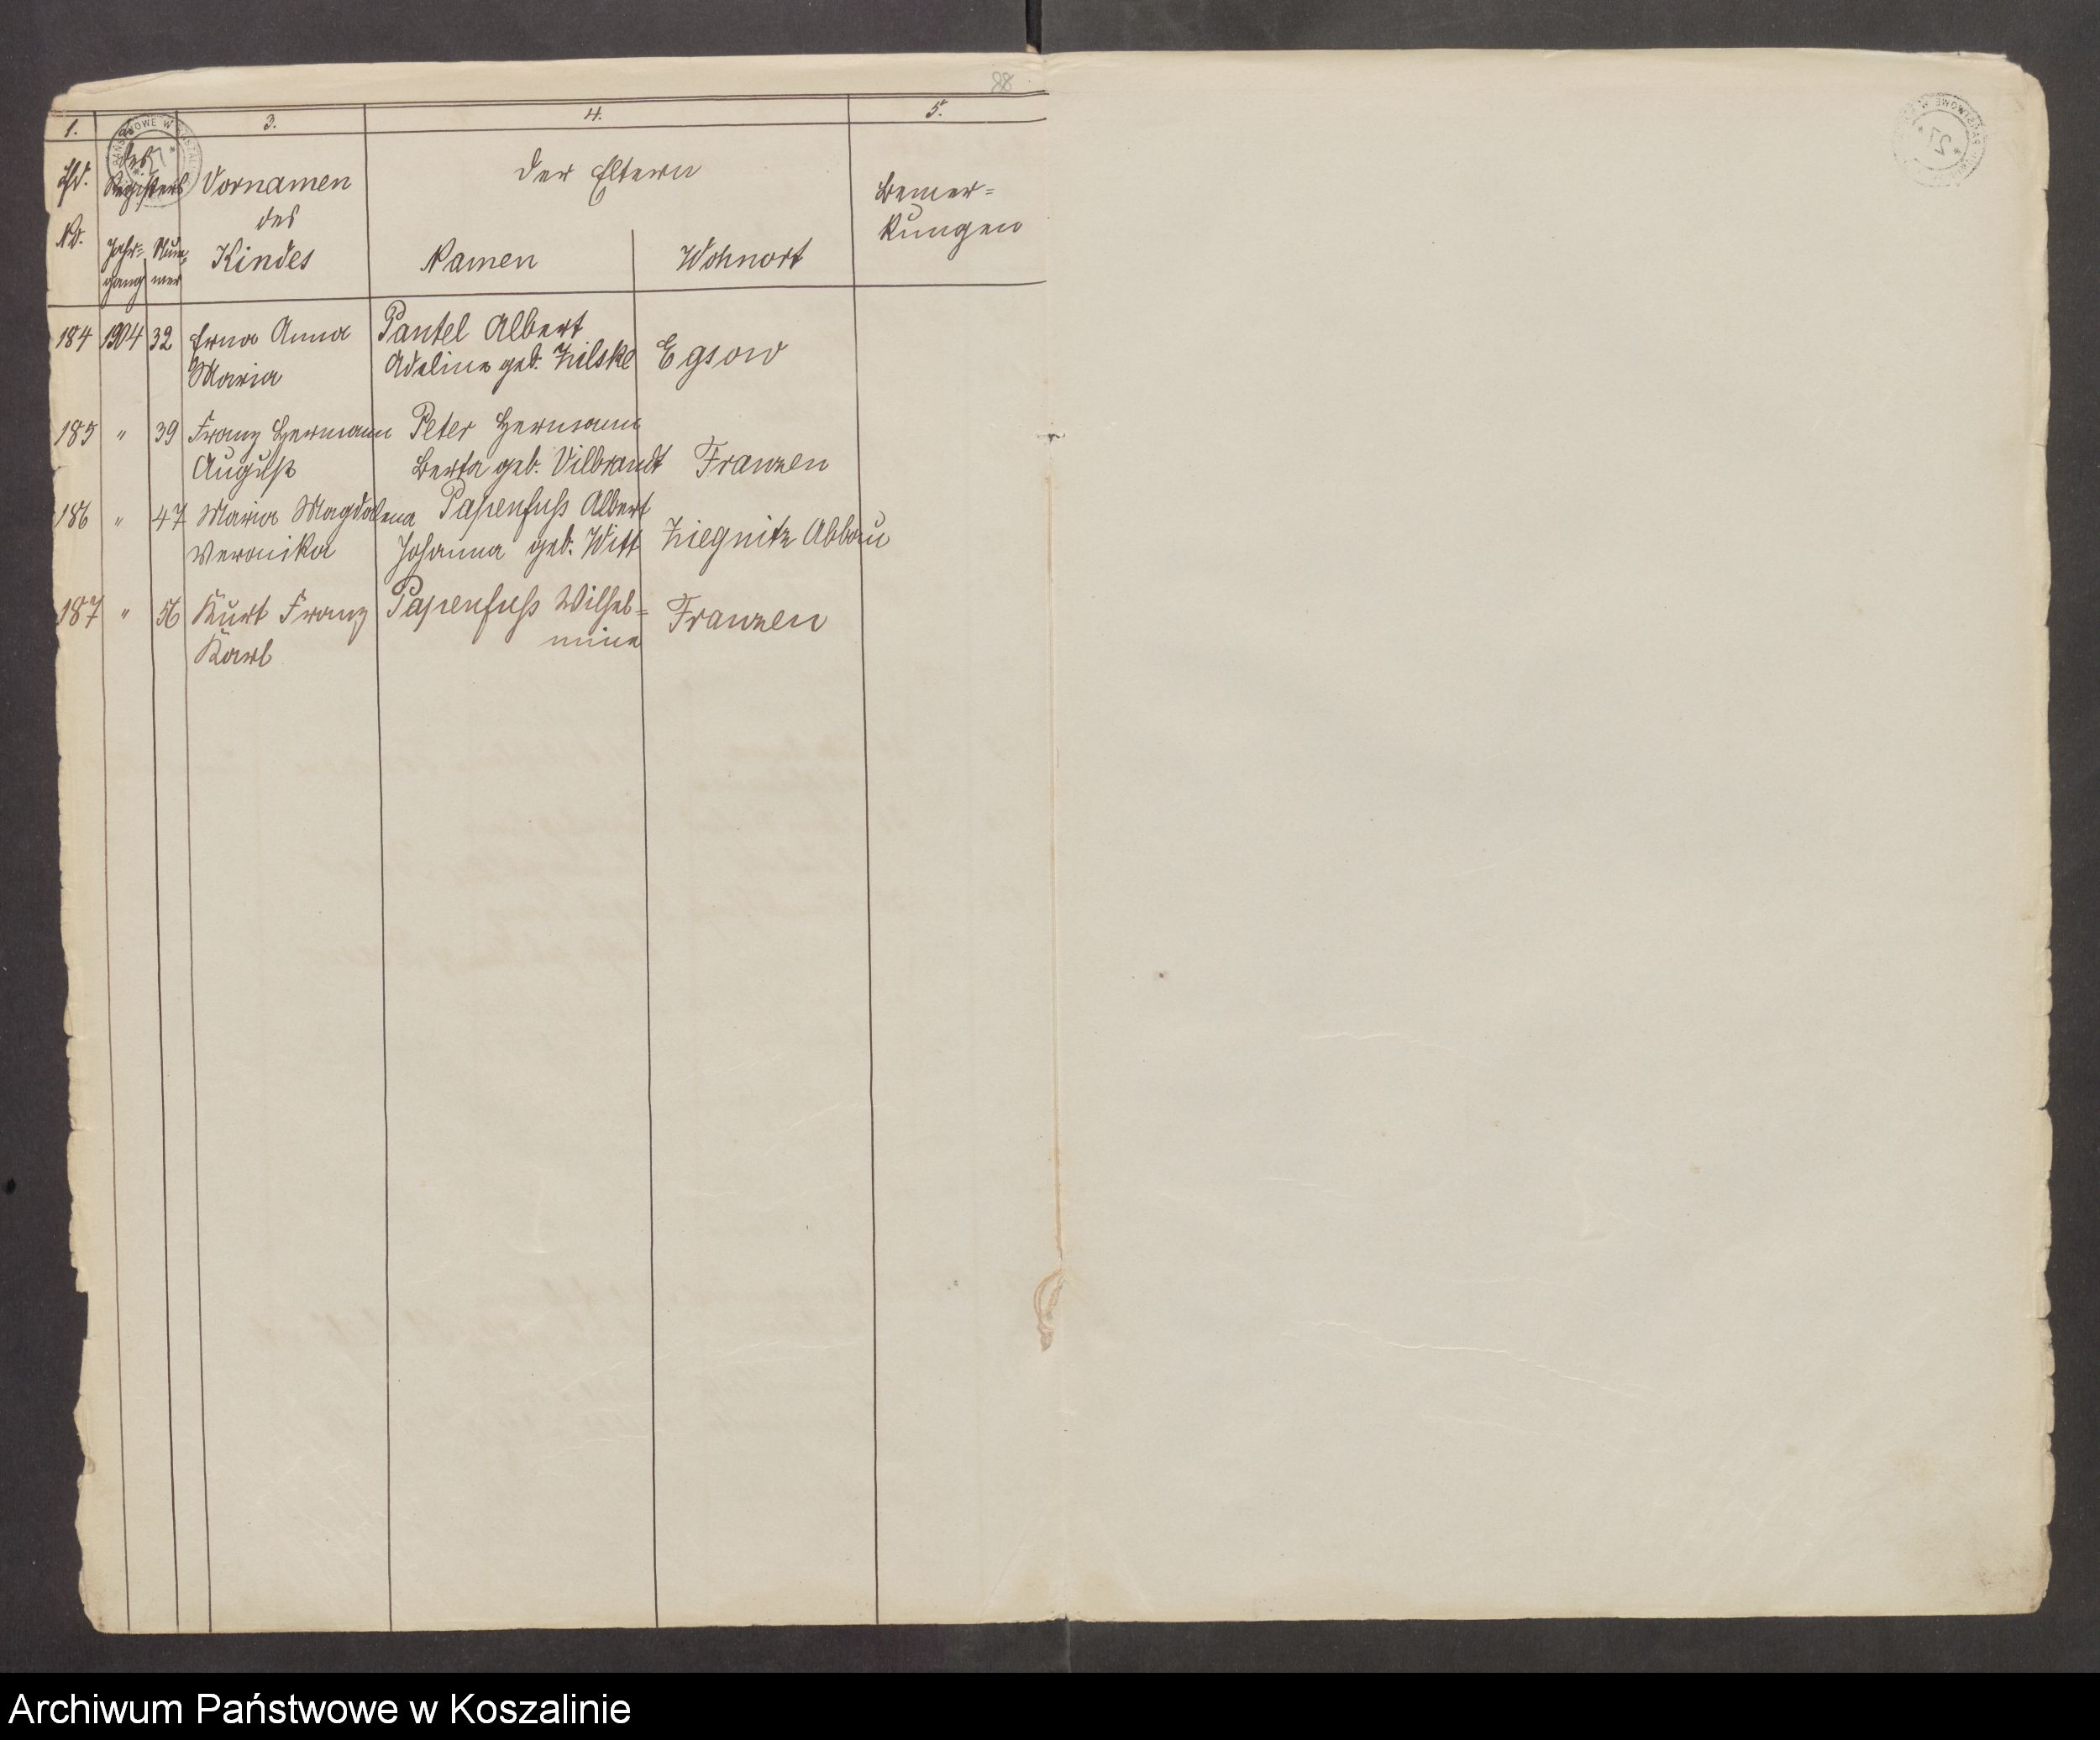 88
1. 3. 4. 5.
lfd. des Registers Vornamen der Eltern Bemer=
No. des kungen
Jahr= Num= Kindes Namen Wohnort
gang mer
184 1904 32 Erna Anna Pantel Albert
Maria Adeline geb. Zielske Egsow
185 " 39 Franz Hermann Peter Hermann
August Berta geb. Vilbrandt Franzen
186 " 47 Maria Magdalena Papenfuß Albert
Veronika Johanna geb. Witt Ziegnitz Abbau
187 " 56 Kurt Franz Papenfuß Wilhel= Franzen
Karl mine
Archiwum Państwowe w Koszalinie